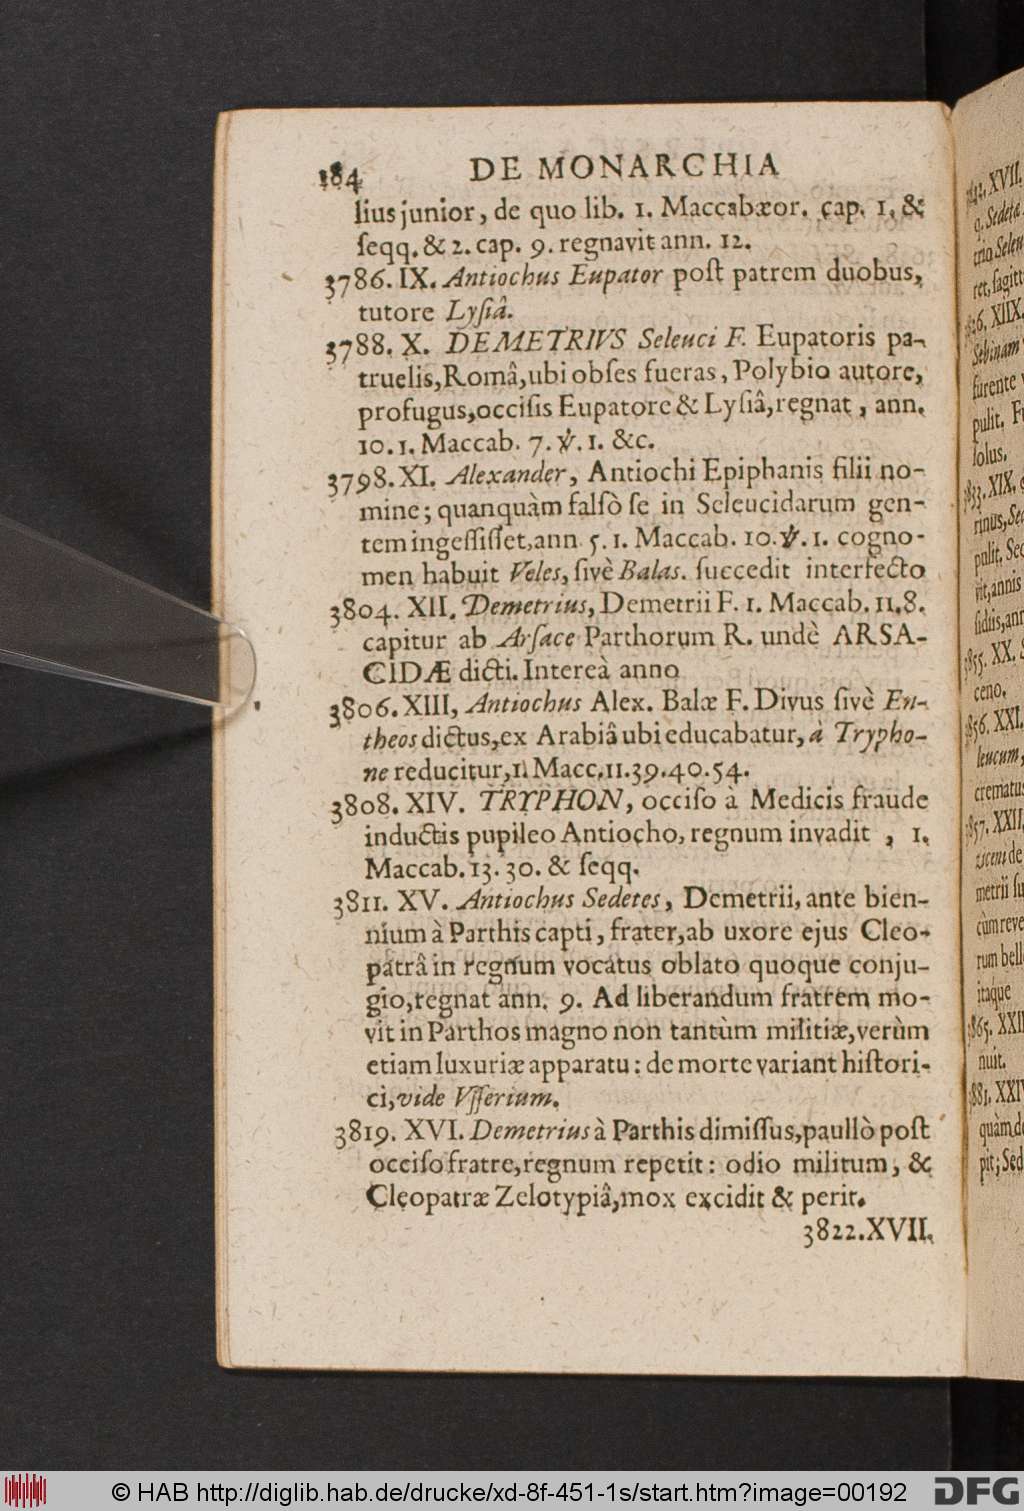 184 DE MONARCHIA
lius junior, de quo lib. 1. Maccabæor. cap. 1. &
ſeqq. & 2. cap. 9. regnavit ann. 12.
3786. IX. Antiochus Eupator poſt patrem duobus,
tutore Lyſiâ.
3788. X. DEMETRIVS Seleuci F. Eupatoris pa-
truelis, Româ, ubi obſes fueras, Polybio autore,
profugus, occiſis Eupatore & Lyſiâ, regnat, ann.
10. 1. Maccab. 7. ℣. 1. &c.
3798. XI. Alexander, Antiochi Epiphanis filii no-
mine; quanquàm falsò ſe in Seleucidarum gen-
tem ingeſſiſſet, ann 5. 1. Maccab. 10. ℣. 1. cogno-
men habuit Veles, ſivè Balas. ſuccedit interfecto
3804. XII. Demetrius, Demetrii F. 1. Maccab. 11. 8.
capitur ab Arſace Parthorum R. undè ARSA-
CIDÆ dicti. Intereà anno
3806. XIII, Antiochus Alex. Balæ F. Divus ſivè En-
theos dictus, ex Arabiâ ubi educabatur, à Trypho-
ne reducitur, 1. Macc. 11. 39. 40. 54.
3808. XIV. TRYPHON, occiſo à Medicis fraude
inductis pupileo Antiocho, regnum invadit, 1.
Maccab. 13. 30. & ſeqq.
3811. XV. Antiochus Sedetes, Demetrii, ante bien-
nium à Parthis capti, frater, ab uxore ejus Cleo-
patrâ in regnum vocatus oblato quoque conju-
gio, regnat ann. 9. Ad liberandum fratrem mo-
vit in Parthos magno non tantùm militiæ, verùm
etiam luxuriæ apparatu: de morte variant hiſtori-
ci, vide Vſſerium.
3819. XVI. Demetrius à Parthis dimiſſus, paullò poſt
occiſo fratre, regnum repetit: odio militum, &
Cleopatræ Zelotypiâ, mox excidit & perit.
3822. XVII.
XVII.
9. Sedeta
trio Seleu
ret, ſagitt
XIIX.
Sebinam
furente
pulit.
ſolus.
XIX.
rinus, Sec
pulit. Sec
vit, annis
ſidiis, ann
3855. XX.
ceno.
3856. XXI.
leucum,
crematus
3857. XXII
ziceni de
metrii ſu
cùm reve
rum bell
itaque
3865. XXII
nuit.
3881. XXIV
quàm de
pit; Sed
© HAB http://diglib.hab.de/drucke/xd-8f-451-1s/start.htm?image=00192
DFG